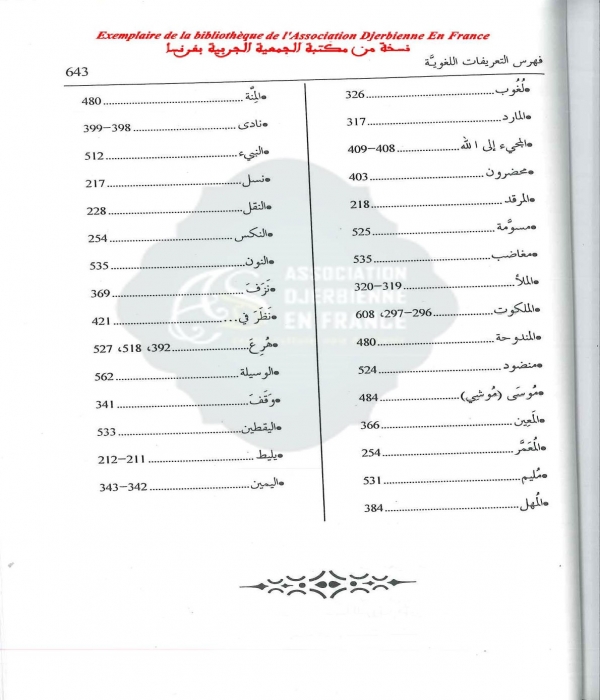 Exemplaire de la bibliothèque de l'Association Djerbienne En France
نسخة من مكتبة الجمعية الجربية بفرنسا
فهرس التعريفات اللغويَّة
643
•لُغُوب..............................326
•المارد..............................317
•المجيء إلى الله....................408-409
•محضرون..............................403
•المرقد..............................218
•مسوَّمة..............................525
•مغاضب..............................535
•الملأ..............................319-320
•الملكوت....................296-297، 608
•المندوحة..............................480
•منضود..............................524
•مُوسَى (مُوشي)....................484
•المَعِين..............................366
•المُعَمَّر..............................254
•مُليم..............................531
•المُهل..............................384
•المِنَّة..............................480
•نادى..............................398-399
•النبيء..............................512
•نسل..............................217
•النقل..............................228
•النكس..............................254
•النون..............................535
•نَزَفَ..............................369
•نَظَرَ في..............................421
•هُرِعَ....................392، 518، 527
•الوسيلة..............................562
•وَقَفَ..............................341
•اليقطين..............................533
•يليط..............................211-212
•اليمين..............................342-343
ASSOCIATION
DJERBIENNE
EN FRANCE